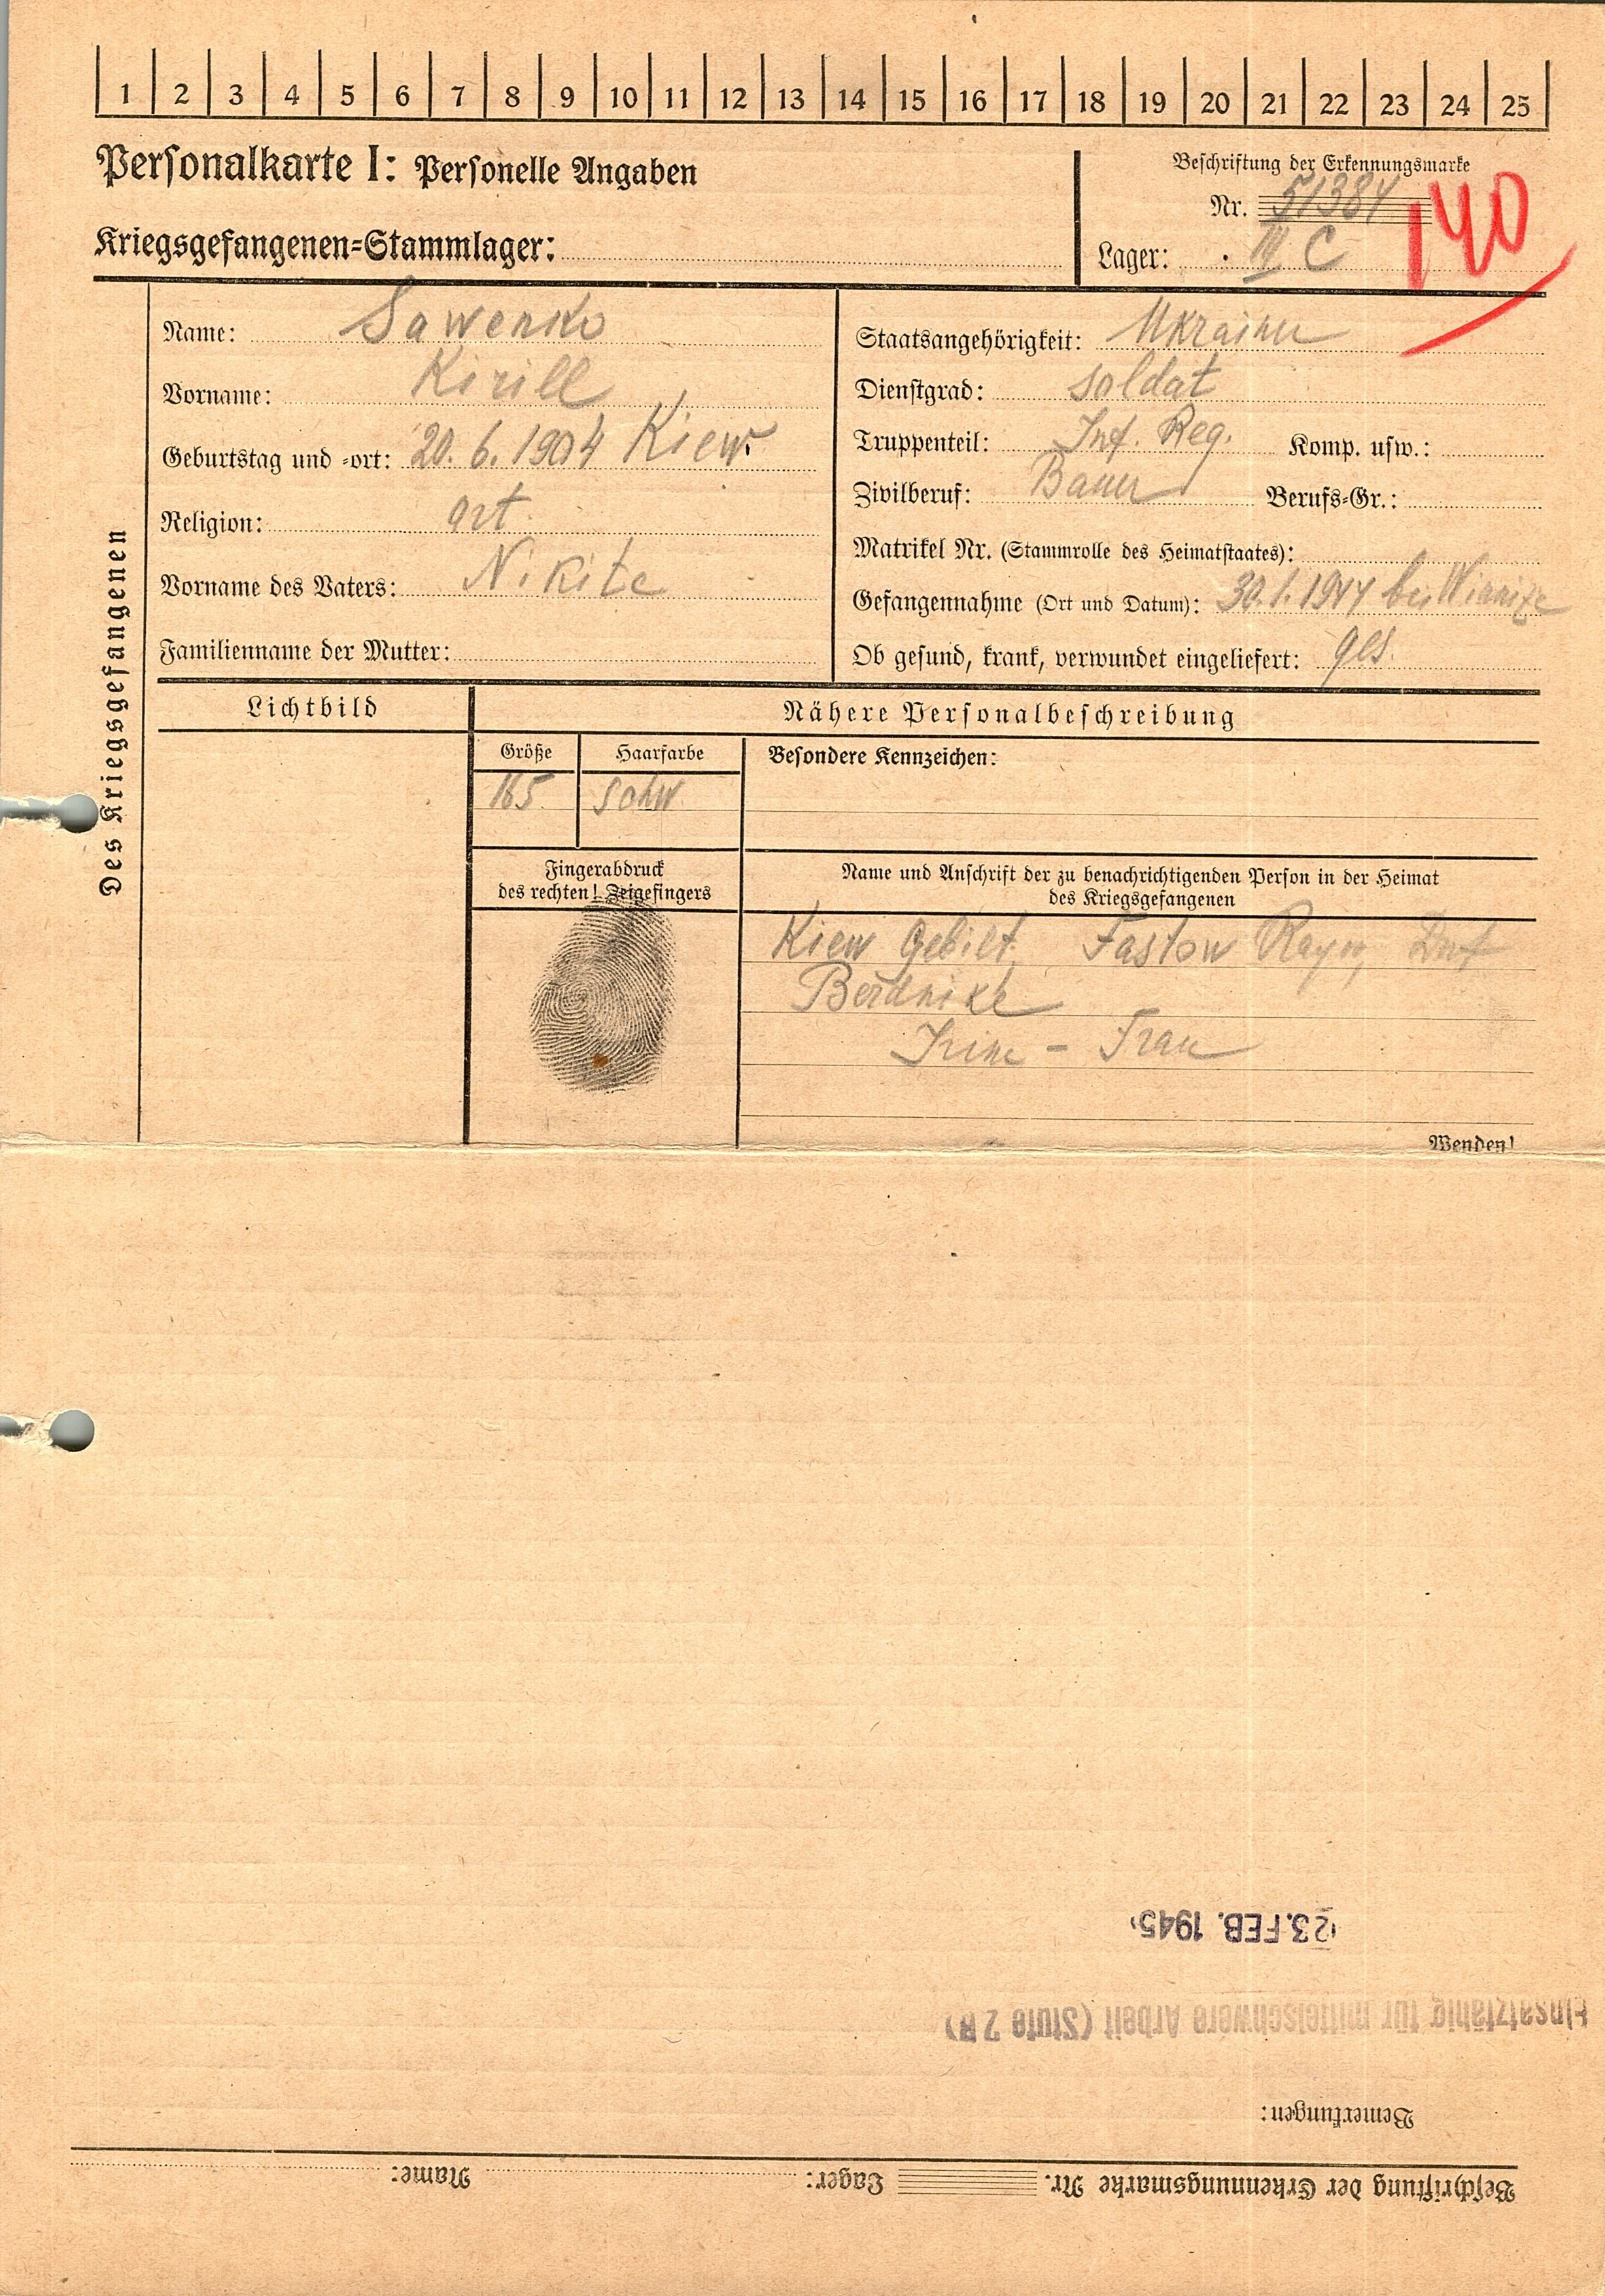 1 2 3 4 5 6 7 8 9 10 11 12 13 14 15 16 17 18 19 20 21 22 23 24 25
Personalkarte I: Personelle Angaben
Kriegsgefangenen-Stammlager:
Beschriftung der Erkennungsmarke
Nr. 51384
Lager: III C
140
Des Kriegsgefangenen
Name: Sawenko
Vorname: Kirill
Geburtstag und -ort: 20. 6. 1904 Kiew
Religion: ort
Vorname des Vaters: Nikite
Familienname der Mutter:
Staatsangehörigkeit: Ukrainer
Dienstgrad: soldat
Truppenteil: Inf. Reg. Komp. usw.:
Zivilberuf: Bauer Berufs-Gr.:
Matrikel Nr. (Stammrolle des Heimatstaates):
Gefangennahme (Ort und Datum): 30. 1. 1944 bei Winnize
Ob gesund, krank, verwundet eingeliefert: ges.
Lichtbild
Nähere Personalbeschreibung
Größe Haarfarbe Besondere Kennzeichen:
165 schw.
Fingerabdruck
des rechten! Zeigefingers
Name und Anschrift der zu benachrichtigenden Person in der Heimat
des Kriegsgefangenen
Kiew Gebiet, Fastow Rayon, Dorf
Berdnike
Irine - Frau
Wenden!
23. FEB. 1945
Einsatzfähig für mittelschwere Arbeit (Stufe 2 B)
Bemerkungen:
Beschriftung der Erkennungsmarke Nr. Lager: Name: